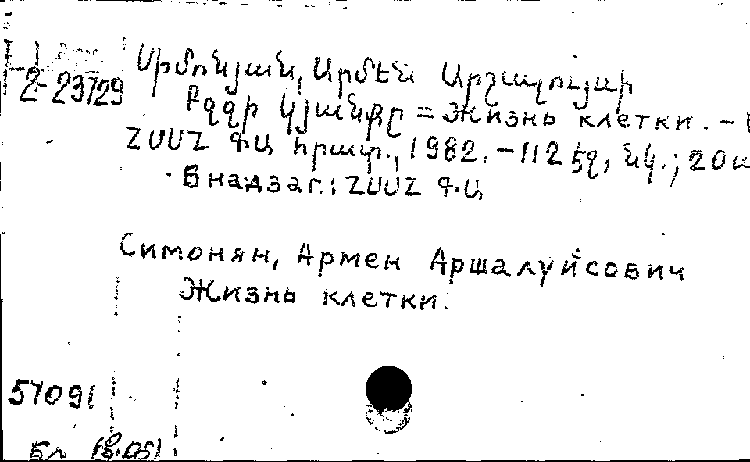 2-23729
Սիմոնյան, Արմեն Արշալույսի
Բջջի կյանքը = Жизнь клетки. –
ՀՍՍՀ ԳԱ հրատ., 1982. – 112 էջ, նկ.; 20
В надзаг.: ՀՍՍՀ ԳԱ
Симонян, Армен Аршалуйсович
Жизнь клетки.
57091